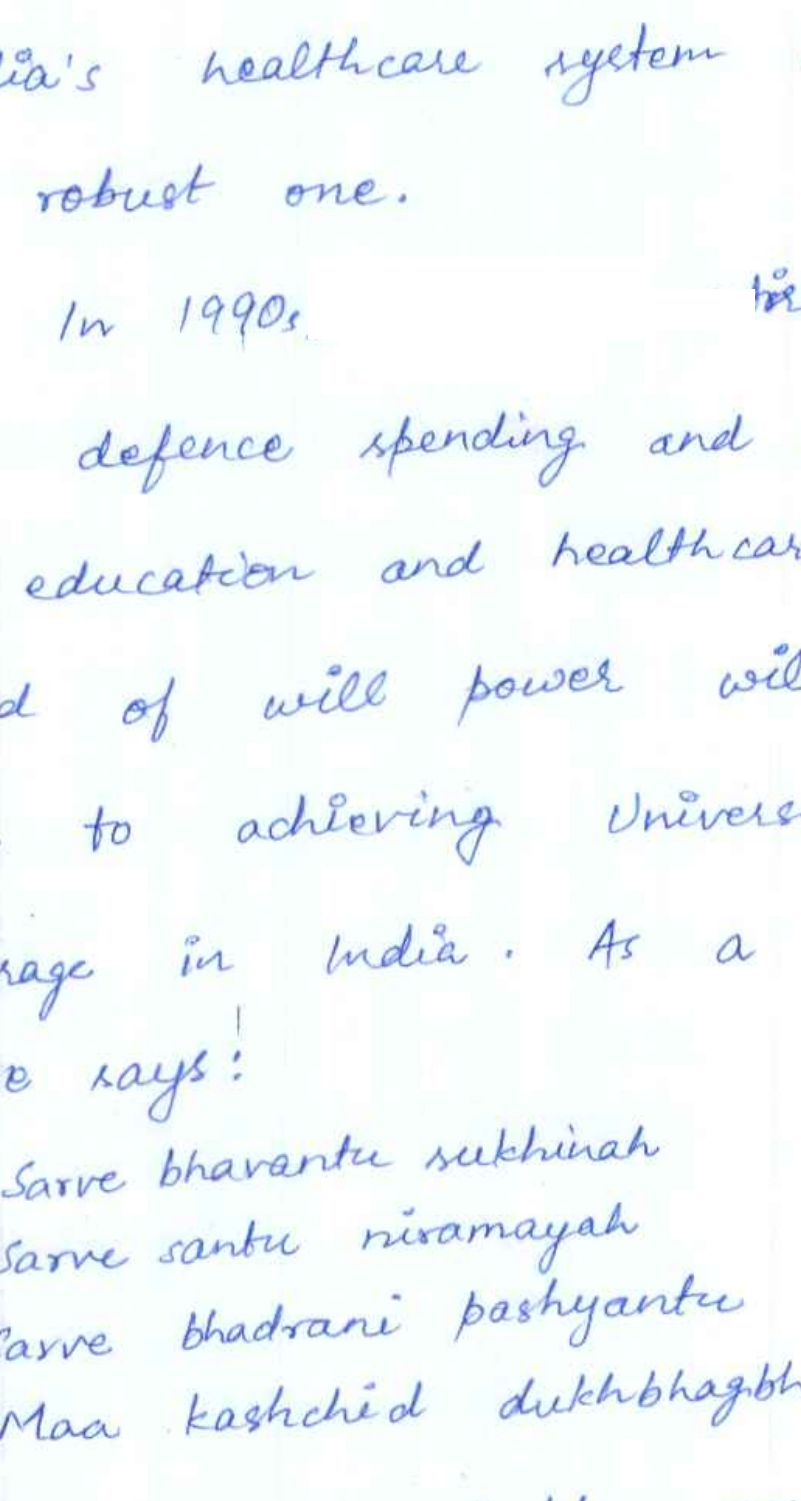 ia's healthcare system
robust one.
In 1990s
defence spending and
education and healthcar
d of will power wil
to achieving Univers
rage in India. As a
e says:
Sarve bhavantu sukhinah
Sarve santu niramayah
Sarve bhadrani pashyantu
Maa kashchid dukhbhagbh